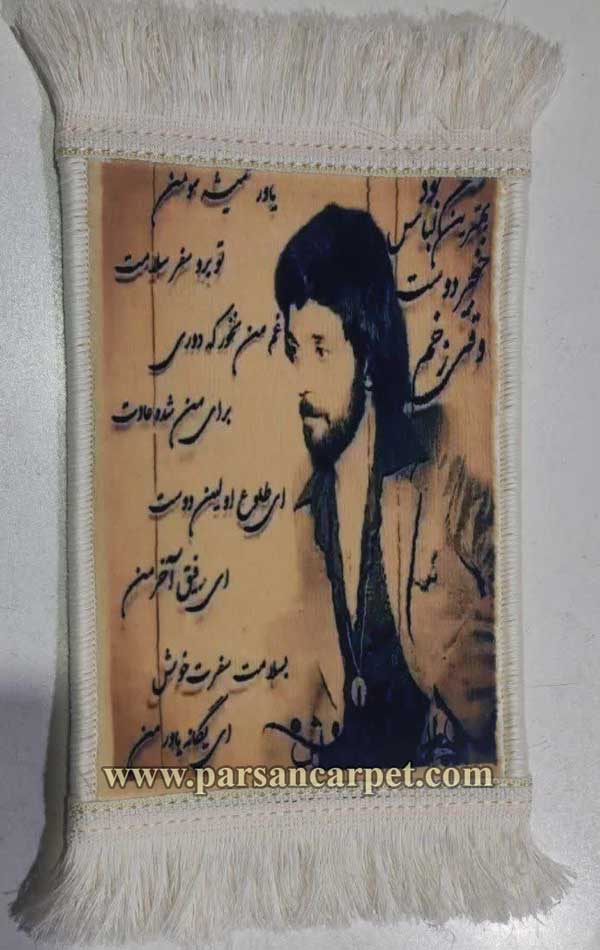 یاور همیشه مومن
تو برو سفر سلامت
غم من نخور که دوری
برای من شده عادت
ای طلوع اولین دوست
ای رفیق آخر من
بسلامت سفرت خوش
ای یگانه یاور من
بهترین لباس
خنجر دوست
وقتی زخم
www.parsancarpet.com